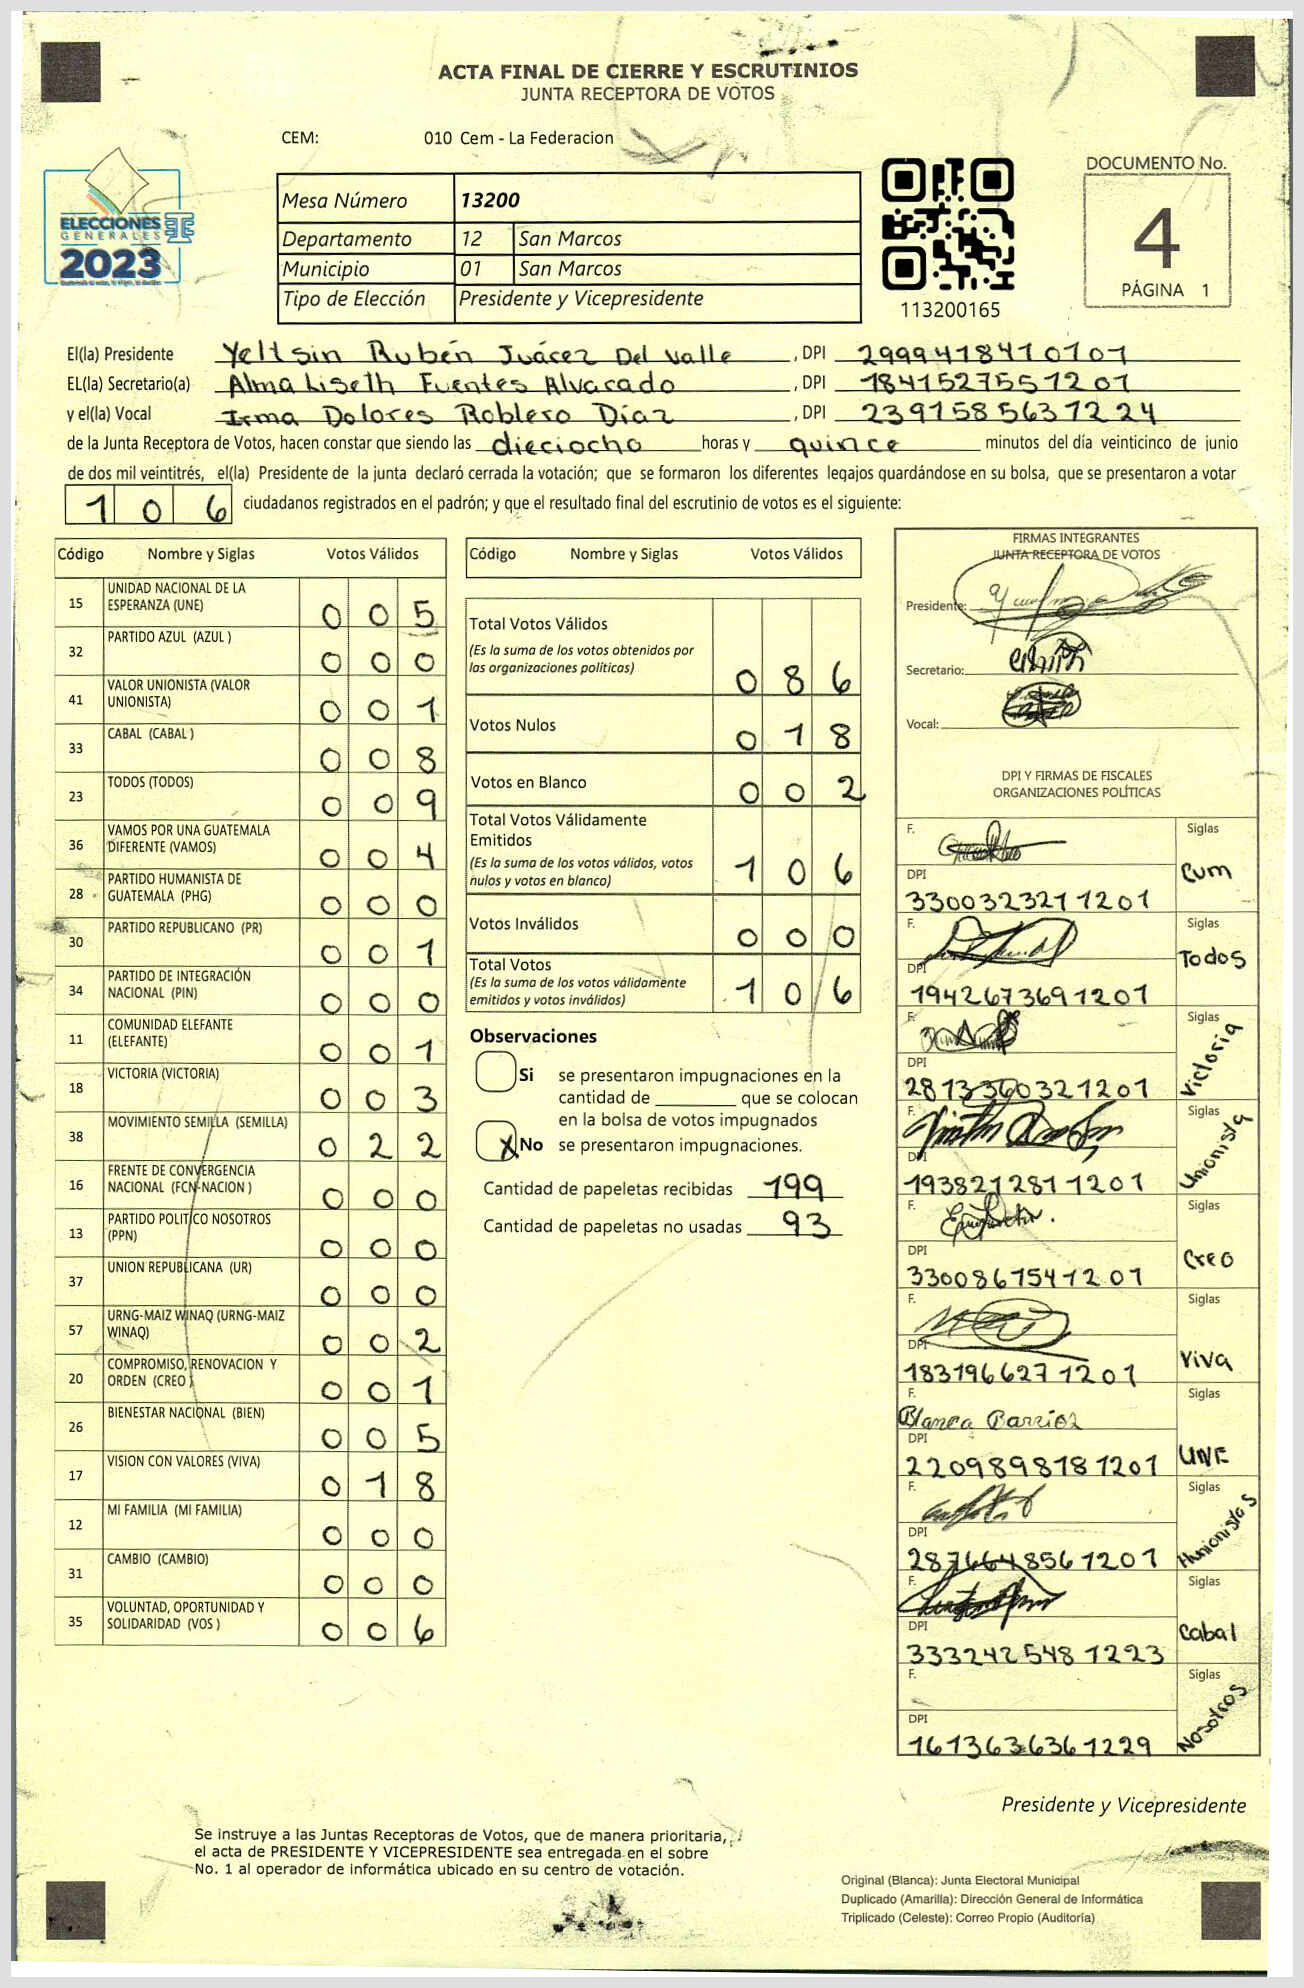 ACTA FINAL DE CIERRE Y ESCRUTINIOS
JUNTA RECEPTORA DE VOTOS
CEM: 010 Cem - La Federacion
ELECCIONES
GENERALES
2023
Mesa Número 13200
Departamento 12 San Marcos
Municipio 01 San Marcos
Tipo de Elección Presidente y Vicepresidente
113200165
DOCUMENTO No.
4
PÁGINA 1
El(la) Presidente Yeltsin Rubén Juárez Del Valle, DPI 2999418410101
EL(la) Secretario(a) Alma Liseth Fuentes Alvarado, DPI 1841527551201
y el(la) Vocal Irma Dolores Roblero Díaz, DPI 2391585631224
de la Junta Receptora de Votos, hacen constar que siendo las dieciocho horas y quince minutos del día veinticinco de junio
de dos mil veintitrés, el(la) Presidente de la junta declaró cerrada la votación; que se formaron los diferentes legajos quardándose en su bolsa, que se presentaron a votar
106 ciudadanos registrados en el padrón; y que el resultado final del escrutinio de votos es el siguiente:
Código Nombre y Siglas Votos Válidos
15 UNIDAD NACIONAL DE LA ESPERANZA (UNE) 005
32 PARTIDO AZUL (AZUL ) 000
41 VALOR UNIONISTA (VALOR UNIONISTA) 001
33 CABAL (CABAL ) 008
23 TODOS (TODOS) 009
36 VAMOS POR UNA GUATEMALA DIFERENTE (VAMOS) 004
28 PARTIDO HUMANISTA DE GUATEMALA (PHG) 000
30 PARTIDO REPUBLICANO (PR) 001
34 PARTIDO DE INTEGRACIÓN NACIONAL (PIN) 000
11 COMUNIDAD ELEFANTE (ELEFANTE) 001
18 VICTORIA (VICTORIA) 003
38 MOVIMIENTO SEMILLA (SEMILLA) 022
16 FRENTE DE CONVERGENCIA NACIONAL (FCN-NACION ) 000
13 PARTIDO POLITICO NOSOTROS (PPN) 000
37 UNION REPUBLICANA (UR) 000
57 URNG-MAIZ WINAQ (URNG-MAIZ WINAQ) 002
20 COMPROMISO, RENOVACION Y ORDEN (CREO ) 001
26 BIENESTAR NACIONAL (BIEN) 005
17 VISION CON VALORES (VIVA) 018
12 MI FAMILIA (MI FAMILIA) 000
31 CAMBIO (CAMBIO) 000
35 VOLUNTAD, OPORTUNIDAD Y SOLIDARIDAD (VOS ) 006
Código Nombre y Siglas Votos Válidos
Total Votos Válidos
(Es la suma de los votos obtenidos por
las organizaciones políticas) 086
Votos Nulos 018
Votos en Blanco 002
Total Votos Válidamente
Emitidos
(Es la suma de los votos válidos, votos
nulos y votos en blanco) 106
Votos Inválidos 000
Total Votos
(Es la suma de los votos válidamente
emitidos y votos inválidos) 106
Observaciones
Si se presentaron impugnaciones en la
cantidad de ________ que se colocan
en la bolsa de votos impugnados
X No se presentaron impugnaciones.
Cantidad de papeletas recibidas 199
Cantidad de papeletas no usadas 93
FIRMAS INTEGRANTES
JUNTA RECEPTORA DE VOTOS
Presidente:
Secretario:
Vocal:
DPI Y FIRMAS DE FISCALES
ORGANIZACIONES POLÍTICAS
F. Siglas
DPI Cum
3300323211201
F. Siglas
DPI Todos
1942673691201
F. Siglas
DPI Victoria
2813360321201
F. Siglas
DPI Unionista
1938212811201
F. Siglas
DPI Creo
3300861541201
F. Siglas
DPI Viva
1831966271201
F. Blanca Barrios Siglas
DPI UNE
2209898181201
F. Siglas
DPI Hunionistas
2876648561201
F. Siglas
DPI Cabal
3332425481223
F. Siglas
DPI Nosotros
1613636361229
Presidente y Vicepresidente
Se instruye a las Juntas Receptoras de Votos, que de manera prioritaria,
el acta de PRESIDENTE Y VICEPRESIDENTE sea entregada en el sobre
No. 1 al operador de informática ubicado en su centro de votación.
Original (Blanca): Junta Electoral Municipal
Duplicado (Amarilla): Dirección General de Informática
Triplicado (Celeste): Correo Propio (Auditoría)